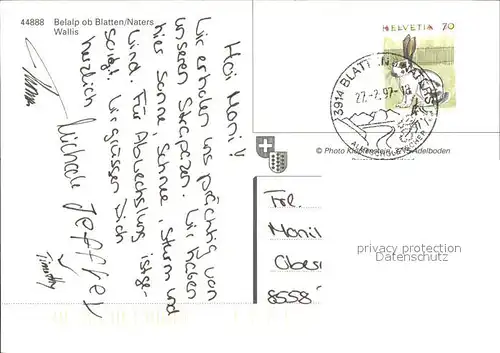 44888 Belalp ob Blatten/Naters
Wallis
Hoi Moni!
Wir erholen uns prächtig von
unseren Strapazen. Wir haben
hier Sonne, Schnee, Sturm und
Wind. Für Abwechslung ist ge-
sorgt. Wir grüssen Dich
herzlich
Michaela Jeffrey
Timothy
HELVETIA 70
3914 BLATTEN B. NATERS
27.-2.97-18
© Photo Klopfenstein, 3715 Adelboden
Frl.
8558
privacy protection
Datenschutz